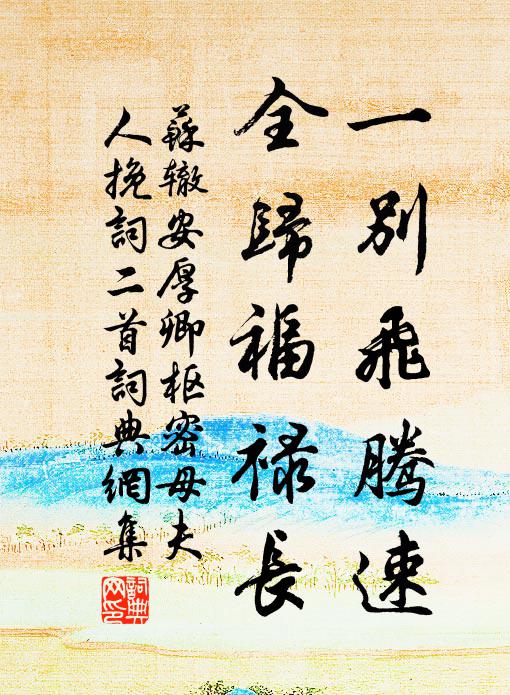 一別飛騰速
全歸福祿長
蘇辙安厚卿枢密母夫
人挽詞二首詞典網集
詞典网印